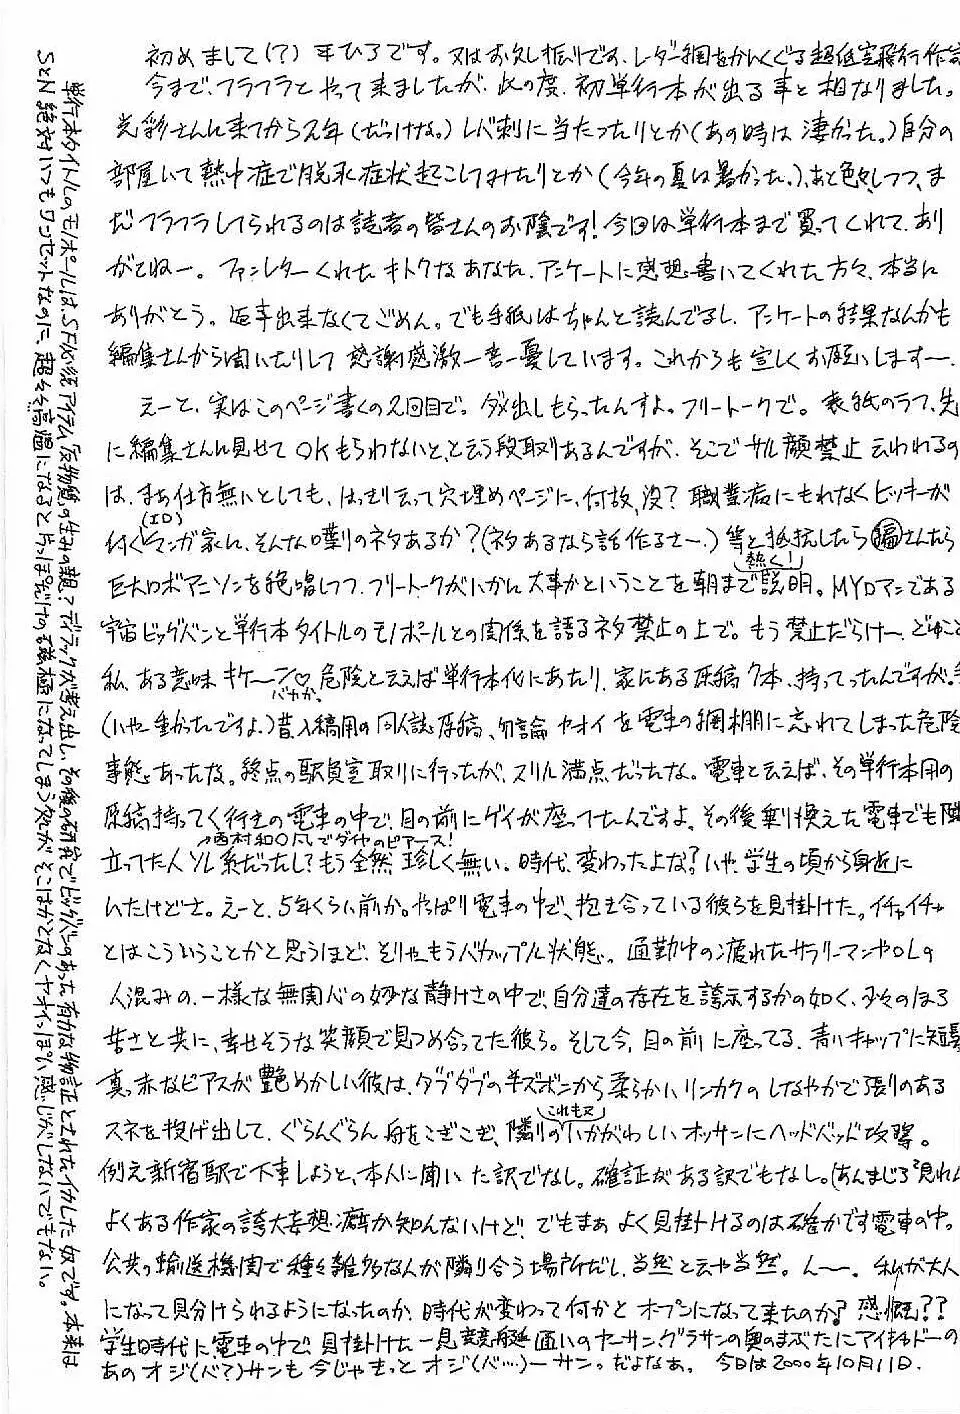 初めまして(?) ひろです。又はお久し振りです、レーダー網をかいくぐる超低空飛行作家
今まで、フラフラとやって来ましたが、此の度、初単行本が出る事と相なりました。
光彩さんに来てから2年(だっけな。)レバ刺に当たったりとか(あの時は凄かった。)自分の
部屋にいて熱中症で脱水症状起こしてみたりとか(今年の夏は暑かった。)、あと色々しつつ、ま
だフラフラしてられるのは読者の皆さんのお陰です!今回は単行本まで買ってくれて、あり
がとねー。ファンレターくれたキトクなあなた、アンケートに感想書いてくれた方々、本当に
ありがとう。返事出来なくてごめん。でも手紙はちゃんと読んでるし、アンケートの結果なんかも
編集さんから聞いたりして感謝感激一喜一憂しています。これからも宜しくお願いします〜。
えーと、実はこのページ書くの2回目で。ダメ出しもらったんすよ。フリートークで。表紙のラフ、先
に編集さんに見せてOKもらわないと、と云う段取りあるんですが、そこでサル顔禁止云われるの
は、まあ仕方無いとしても、はっきり云って穴埋めページに、何故、没?職業病にもれなくヒッキーが
付く(エロ)マンガ家に、そんな喋りのネタあるか?(ネタあるなら話作るさー。)等と抵抗したら編さんたら
巨大ロボアニソンを絶唱しつつ、フリートークがいかに大事かということを朝まで熱く!説明。MYロマンである
宇宙ビッグバンと単行本タイトルのモノポールとの関係を語るネタ禁止の上で。もう禁止だらけー、どゆこと
私、ある意味キケーン♡バカが。危険と云えば単行本化にあたり、家にある原稿7本、持ってったんですが。
(いや重かったですよ。)昔入稿用の同人誌原稿、勿論ヤオイを電車の網棚に忘れてしまった危険
事態あったな。終点の駅員室取りに行ったが、スリル満点だったな。電車と云えば、その単行本用の
原稿持ってく行きの電車の中で、目の前にゲイが座ってたんですよ。その後乗り換えた電車でも隣
↗西村和○风でダイヤのピアース!
立ってた人ソレ系だったし?もう全然珍しく無い。時代、変わったよな?いや、学生の頃から身近に
いたけどさ。えーと、5年くらい前か。やっぱり電車の中で、抱き合っている彼らを見掛けた。イチャイチャ
とはこういうことかと思うほど、そりゃもうバカップル状態。通勤中の疲れたサラリーマンやOLの
人混みの、一様な無関心の妙な静けさの中で、自分達の存在を誇示するかの如く、少々のほろ
苦さと共に、幸せそうな笑顔で見つめ合ってた彼ら。そして今、目の前に座ってる、青いキャップに短髪
真っ赤なピアスが艶めかしい彼は、ダブダブの半ズボンから柔らかいリンカクのしなやかで張りのある
スネを投げ出して、ぐらんぐらん舟をこぎこぎ、隣りのこれも又いかがわしいオッサンにヘッドバッド攻撃。
例え新宿駅で下車しようと、本人に聞いた訳でなし。確証がある訳でもなし。(あんまじろ²見れん
よくある作家の誇大妄想癖か知んないけど、でもまあよく見掛けるのは確かです電車の中。
公共の輸送機関で種々雑多な人が隣り合う場所だし、当然と云や当然。んー。私が大人
になって見分けられるようになったのか、時代が変わって何かとオープンになって来たのか?感慨??
学生時代に電車の中で、見掛けた一見競艇通いのヤーサン、グラサンの奥のまぶたにアイシャドーの
あのオジ(バ?)サンも今じゃきっとオジ(バ…)ーサン。だよなぁ。 今日は2000年10月11日.
単行本タイトルのモノポールは、SF必須アイテム「反物質」の生みの親、ディラックが考え出し、その後の研究でビッグバンのあった有力な物証とされたイカした奴です。本来は
SとN絶対いつもワンセットなのに、超々高温になると片っぽだけの磁極になってしまう処が、そこはかとなくヤオイっぽい感じがしないでもない。